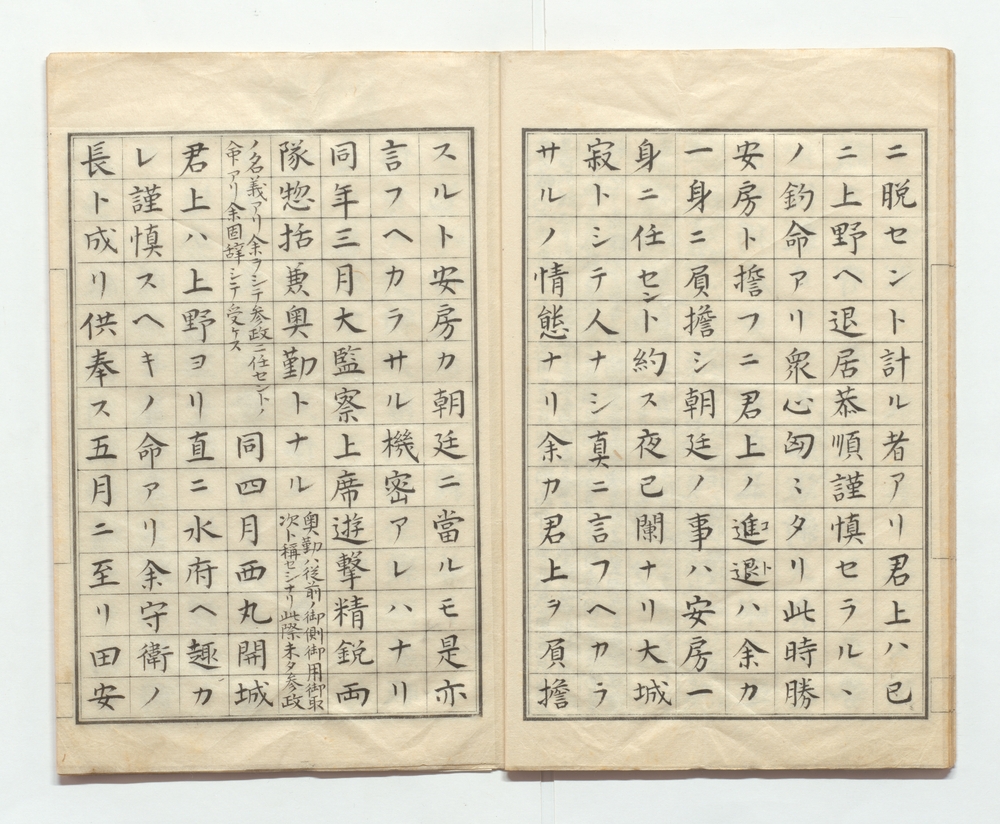 ニ脱セント計ル者アリ君上ハ已
ニ上野ヘ退居恭順謹慎セラルヽ
ノ鈞命アリ衆心匈〻タリ此時勝
安房ト擔フニ君上ノ進退コトハ余カ
一身ニ負擔シ朝廷ノ事ハ安房一
身ニ任セント約ス夜已闌ナリ大城
寂トシテ人ナシ真ニ言フヘカラ
サルノ情態ナリ余カ君上ヲ負擔
スルト安房カ朝廷ニ當ルモ是亦
言フヘカラサル機密アレハナリ
同年三月大監察上席遊撃精鋭両
隊惣括兼奥勤トナル
奥勤ハ従前ノ御側御用御取
次ト稱セシナリ此際未タ参政
ノ名義アリ余ヲシテ参政ニ任セントノ
命アリ余固辞シテ受ケス
同四月西丸開城
君上ハ上野ヨリ直ニ水府ヘ趣カ
レ謹慎スヘキノ命アリ余守衛ノ
長ト成リ供奉ス五月ニ至リ田安